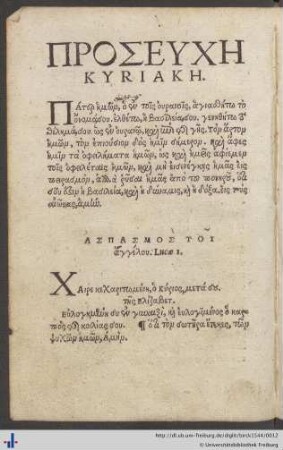 ΠΡΟΣΕΥΧΗ
ΚΥΡΙΑΚΗ.
Πάτερ ἡμῶν, ὁ ὢν τοῖς οὐρανοῖς, ἁγιασθήτω τὸ
ὄνομά σου. ἐλθέτω ἡ βασιλεία σου. γενηθήτω τὸ
θέλημά σου. ὡς ἐν οὐρανῷ, καὶ ἐπὶ γῆς. τὸν ἄρτον
ἡμῶν, τὸν ἐπιούσιον δὸς ἡμῖν σήμερον. καὶ ἄφες
ἡμῖν τὰ ὀφειλήματα ἡμῶν, ὡς καὶ ἡμεῖς ἀφίεμεν
τοῖς ὀφειλέταις ἡμῶν, καὶ μὴ εἰσενέγκῃς ἡμᾶς εἰς
πειρασμόν, ἀλλὰ ῥῦσαι ἡμᾶς ἀπὸ τοῦ πονηροῦ, ὅτι
σου ἐστιν ἡ βασιλεία, καὶ ἡ δύναμις, καὶ ἡ δόξα, εἰς τοὺς
αἰῶνας, ἀμήν.
ΑΣΠΑΣΜΟΣ ΤΟΥ
ἀγγέλου. Lucæ 1.
Χαῖρε κεχαριτωμένη, ὁ κύριος, μετά σου
εὐλογημένη σὺ ἐν γυναιξί, καὶ εὐλογημένος ὁ καρπὸς
τῆς κοιλίας σου. ὅτι τὸν σωτῆρα ἔτεκες, τῶν
ψυχῶν ἡμῶν, ἀμήν.
http://dl.ub.uni-freiburg.de/diglit/birck1544/0012
© Universitätsbibliothek Freiburg